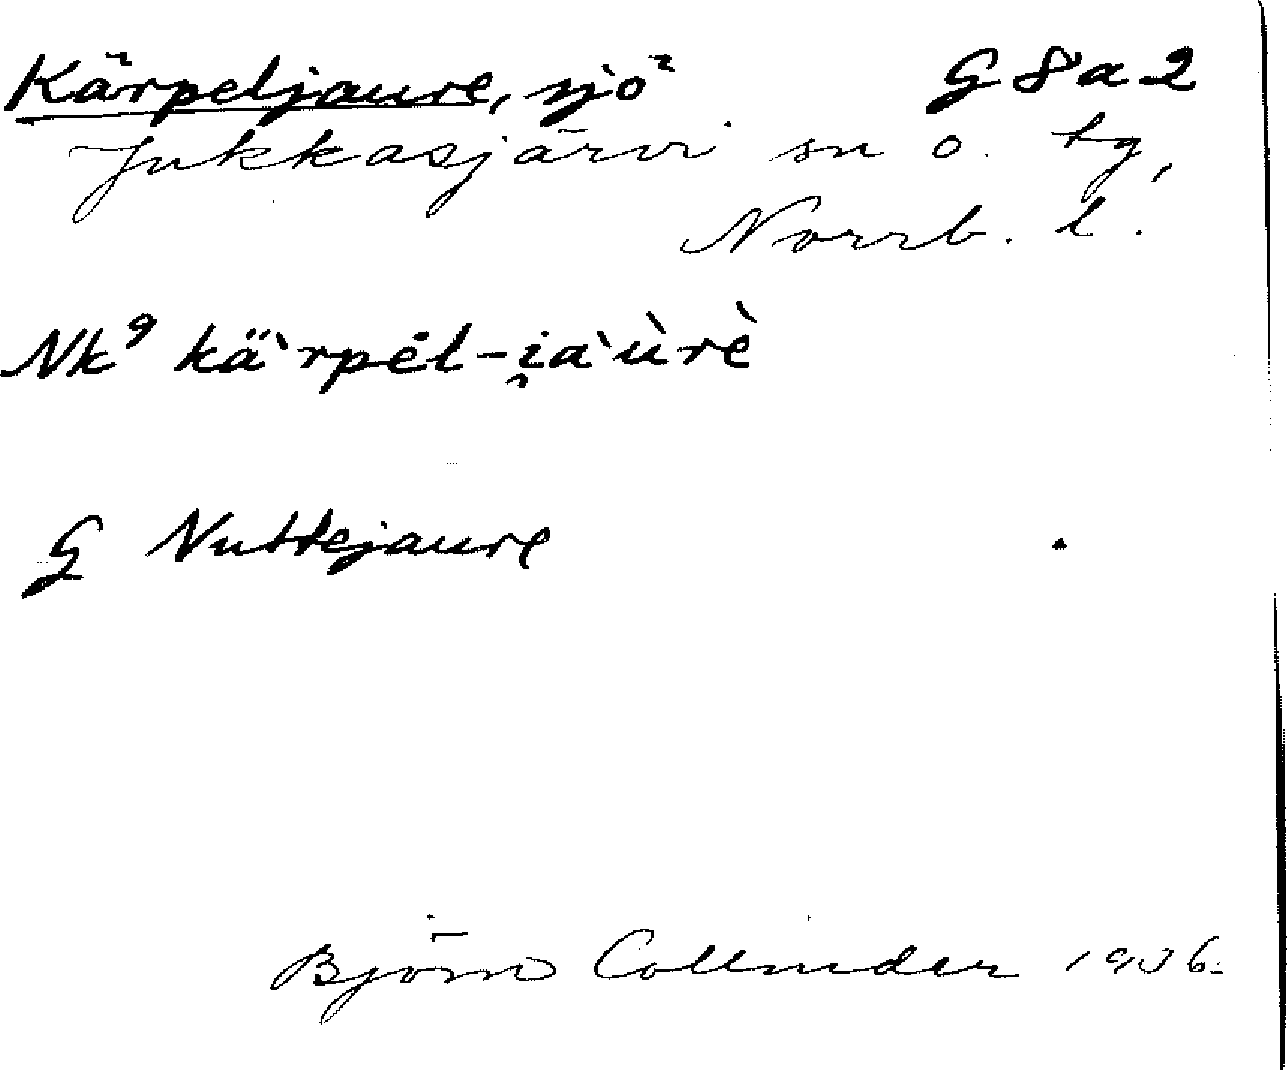 Kärpeljaure, sjö G 8 a 2
Jukkasjärvi sn o. tg,
Norrb. l.
Nk⁹ kä`rpėl-i̯a`ùrè
G Nuttejaure
Björn Collinder 1936.